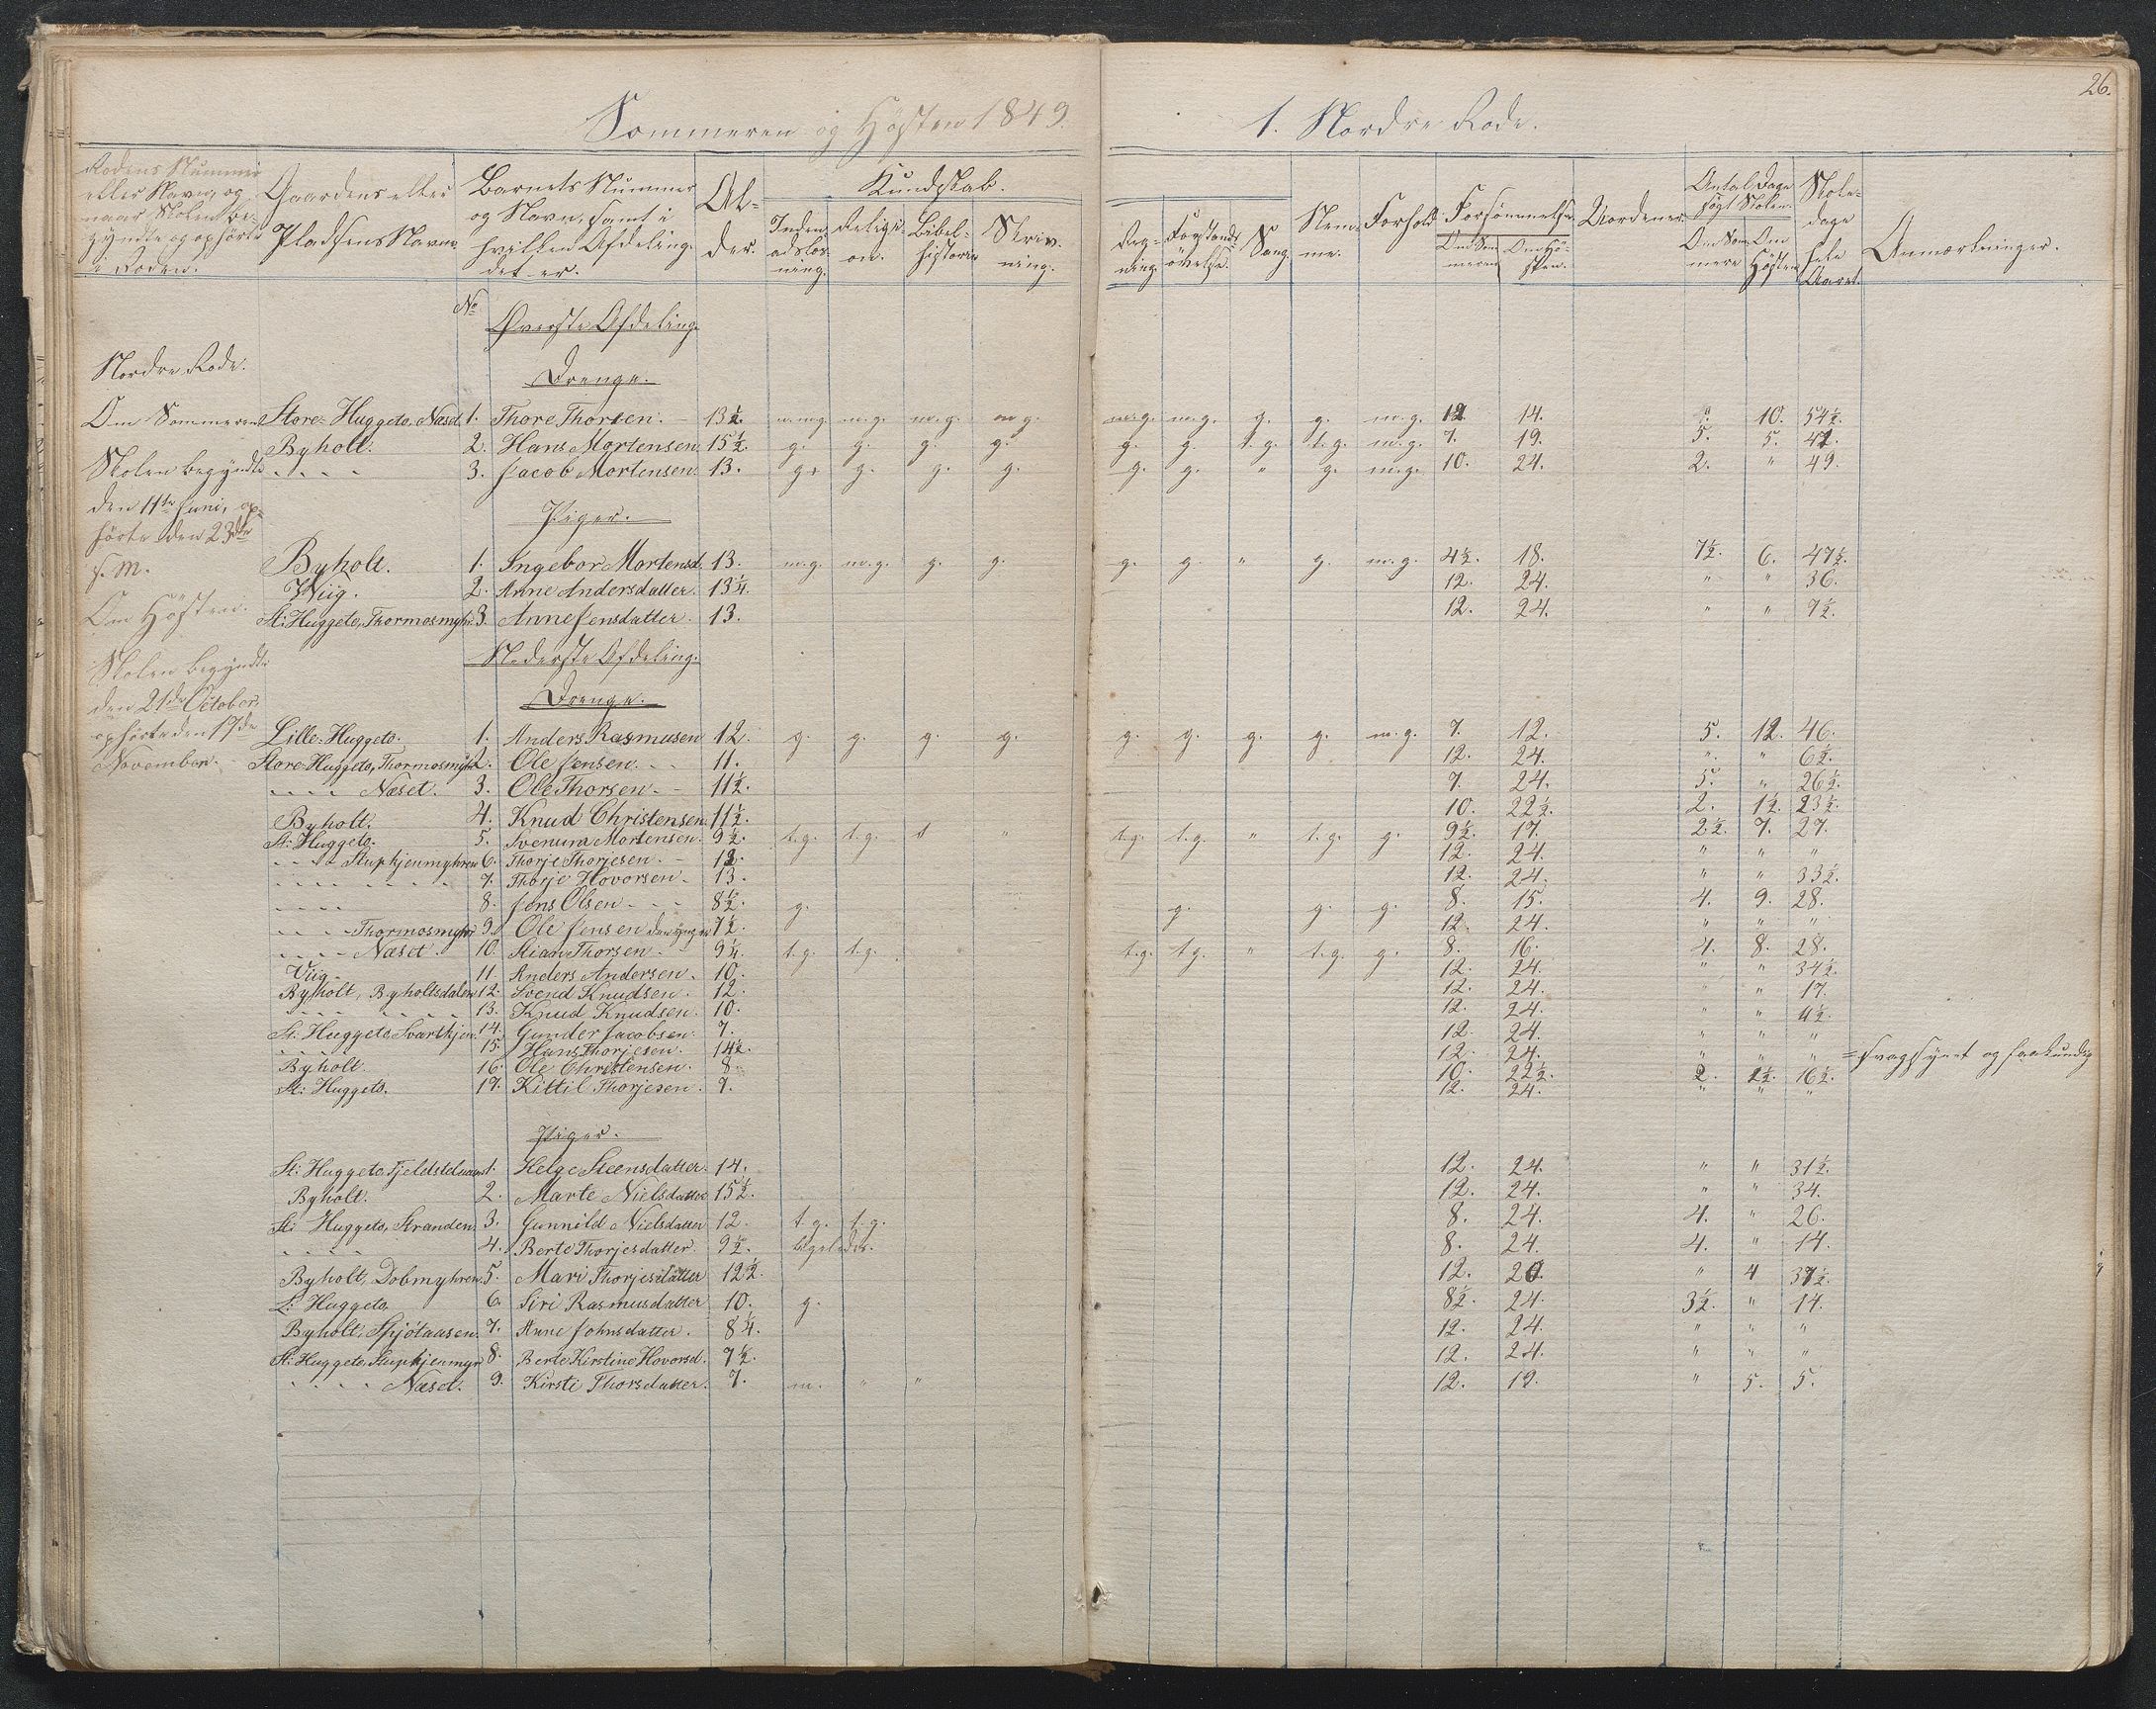 26.
Sommeren og Høsten 1849.
1. Nordre Rode.
Rodens Nummer eller Navn, og naar Skolen begyndte og ophørte i Roden.
Gaardens eller Pladsens Navn.
Barnets Nummer og Navn, samt i hvilken Afdeling det er.
Alder.
Kundskab.
Indenadslæsning.
Religion.
Bibelhistorie
Skrivning.
Regning.
Forstandsøvelse.
Sang
Nemme.
Forhold
Forsømmelse.
Om Sommeren
Om Høsten.
Uordener.
Antal Dage søgt Skolen.
Om Sommeren
Om Høsten
Skoledage hele Aaret.
Anmærkninger.
No
Øverste Afdeling.
Nordre Rode.
Om Sommeren
Skolen begyndte
den 11te Juni, op-
hørte den 23de
s. M.
Om Høsten.
Skolen begyndte
den 21de October,
ophørte den 17de
November.
Drenge.
Store-Huggeto, Næset 1. Thore Thorsen. 13½. m.m.g. m.g. m.g. m.g. m.g. m.g. g. g. m.g. 12 14. " 10. 54½.
Byholt. 2. Hans Mortensen. 15½. g. g. g. g. g. g. t.g. t.g. m.g. 7. 19. 5. 5. 42.
- - - - 3. Jacob Mortensen. 13. g. g. g. g. g. g. " g. m.g. 10. 24. 2. " 49.
Piger.
Byholt. 1. Ingebor Mortensd. 13. m.g. m.g. g. g. g. g. " g. m.g. 4½. 18. 7½. 6. 47½.
Wiig. 2. Anne Andersdatter. 13¼. 12. 24. " " 36.
St: Huggeto, Thormosmyhr 3. Anne Jensdatter. 13. 12. 24. " " 7½.
Nederste Afdeling.
Drenge.
Lille-Huggeto. 1. Anders Rasmusen 12. g. g. g. g. g. g. g. g. m.g. 7. 12. 5. 12. 46.
Store-Huggeto, Thormosmyhr 2. Ole Jensen. 11. 12. 24. " " 6½.
- - - - Næset. 3. Ole Thorsen 11½. 7. 24. 5. " 26½.
Byholt. 4. Knud Christensen. 11½. 10. 22½. 2. 1½. 23½.
St: Huggeto. 5. Svenum Mortensen. 9½. t.g. t.g. " t.g. t.g. " t.g. g. 9½. 17. 2½. 7. 27.
- - - - Stupkjenmyhren 6. Thorje Thorjesen. 12. 12. 24. " " "
- - - - - - - - 7. Thorje Hovorsen 13. 12. 24. " " 33½.
- - - - 8. Jens Olsen 8½. g. g. g. g. 8. 15. 4. 9. 28.
- - - - Thormosmyhr 9. Ole Jensen den yngre 7½. 12. 24. " " "
- - - - Næset. 10. Stian Thorsen 9¼. t.g. t.g. t.g. t.g. " t.g. g. 8. 16. 4. 8. 28.
Viig. 11. Anders Andersen. 10. 12. 24. " " 34½.
Byholt, Byholtsdalen 12. Svend Knudsen. 12. 12. 24. " " 17.
- - - - - - - - 13. Knud Knudsen. 10. 12. 24. " " 4½.
St: Huggeto, Svartkjen. 14. Gunder Jacobsen. 7. 12. 24. " " "
- - - - 15. Hans Thorjesen. 14½. 12. 24. " " " = svagsynet og
Byholt. 16. Ole Christensen. 8. 10. 22½. 2. 1½. 16½.
St: Huggeto. 17. Kittil Thorjesen. 7. 12. 24. " " "
Piger.
St: Huggeto, 1. Helge Steensdatter. 14. 12. 24. " " 31½.
Byholt. 2. Marte Nielsdatter 15½. 12. 24. " " 34.
St: Huggeto, Stranden. 3. Gunnild Nielsdatter 12. t.g. t.g. 8. 24. 4. " 26.
- - - - 4. Berte Thorjesdatter. 9½. ligeledes. 8. 24. 4. " 14.
Byholt, Dobmyhren 5. Mari Thorjesdatter 12½. 12. 20. " 4 37½.
L: Huggeto. 6. Siri Rasmusdatter 10. g. 8½. 24. 3½. " 14.
Byholt, 7. Anne Johnsdatter. 8¼. 12. 24. " " "
St: Huggeto, Stupkjenmyr 8. Berte Kirstine Hovorsd. 7½. 12. 24. " " "
- - - - Næset. 9. Kirsti Thorsdatter. 7. m. " " 12. 19. " 5. 5.